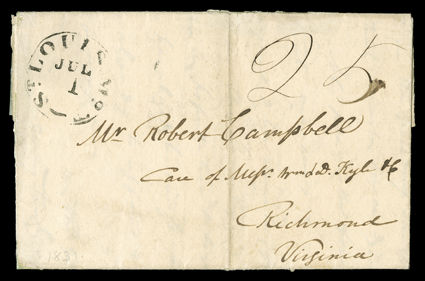 ST LOUIS Mo.
JUL
1
25
Mr Robert Campbell
Care of Messrs. Wm & D. Kyle &c
Richmond
Virginia